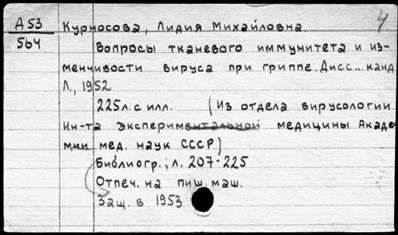 4
А 53 Курносова, Лидия Михайловна.
564 Вопросы тканевого иммунитета и из-
менчивости вируса при гриппе. Дисс.. канд
Л., 1952
225л. с илл. (Из отдела вирусологии
Ин-та экспериментальной медицины Акаде
мии мед. наук СССР)
Библиогр.; л. 207-225
Отпеч. на пиш. маш.
Защ. в 1953